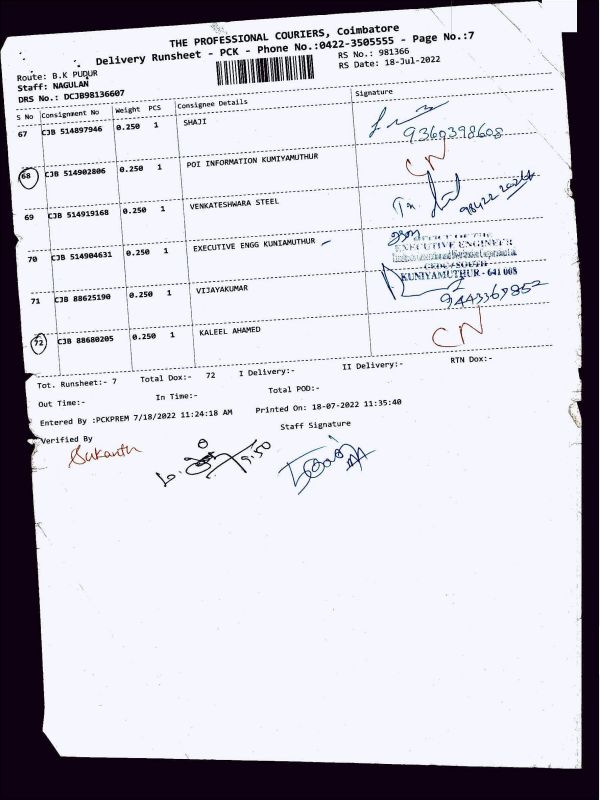 THE PROFESSIONAL COURIERS, Coimbatore
Delivery Runsheet - PCK - Phone No.:0422-3505555 - Page No.:7
Route: B.K PUDUR
RS No.: 981366
Staff: NAGULAN
RS Date: 18-Jul-2022
DRS No.: DCJB98136607
S No Consignment No Weight PCS Consignee Details Signature
67 CJB 514897946 0.250 1 SHAJI
9360398608
68 CJB 514902806 0.250 1 POI INFORMATION KUMIYAMUTHUR CN
69 CJB 514919168 0.250 1 VENKATESHWARA STEEL
70 CJB 514904631 0.250 1 EXECUTIVE ENGG KUNIAMUTHUR
OFFICE OF THE
EXECUTIVE ENGINEER
CEDC/SOUTH
KUNIYAMUTHUR - 641 008
71 CJB 88625190 0.250 1 VIJAYAKUMAR
72 CJB 88680205 0.250 1 KALEEL AHAMED CN
Tot. Runsheet:- 7 Total Dox:- 72 I Delivery:- II Delivery:- RTN Dox:-
Out Time:- In Time:- Total POD:-
Entered By :PCKPREM 7/18/2022 11:24:18 AM Printed On: 18-07-2022 11:35:40
Verified By Staff Signature
Sukanth
9.50